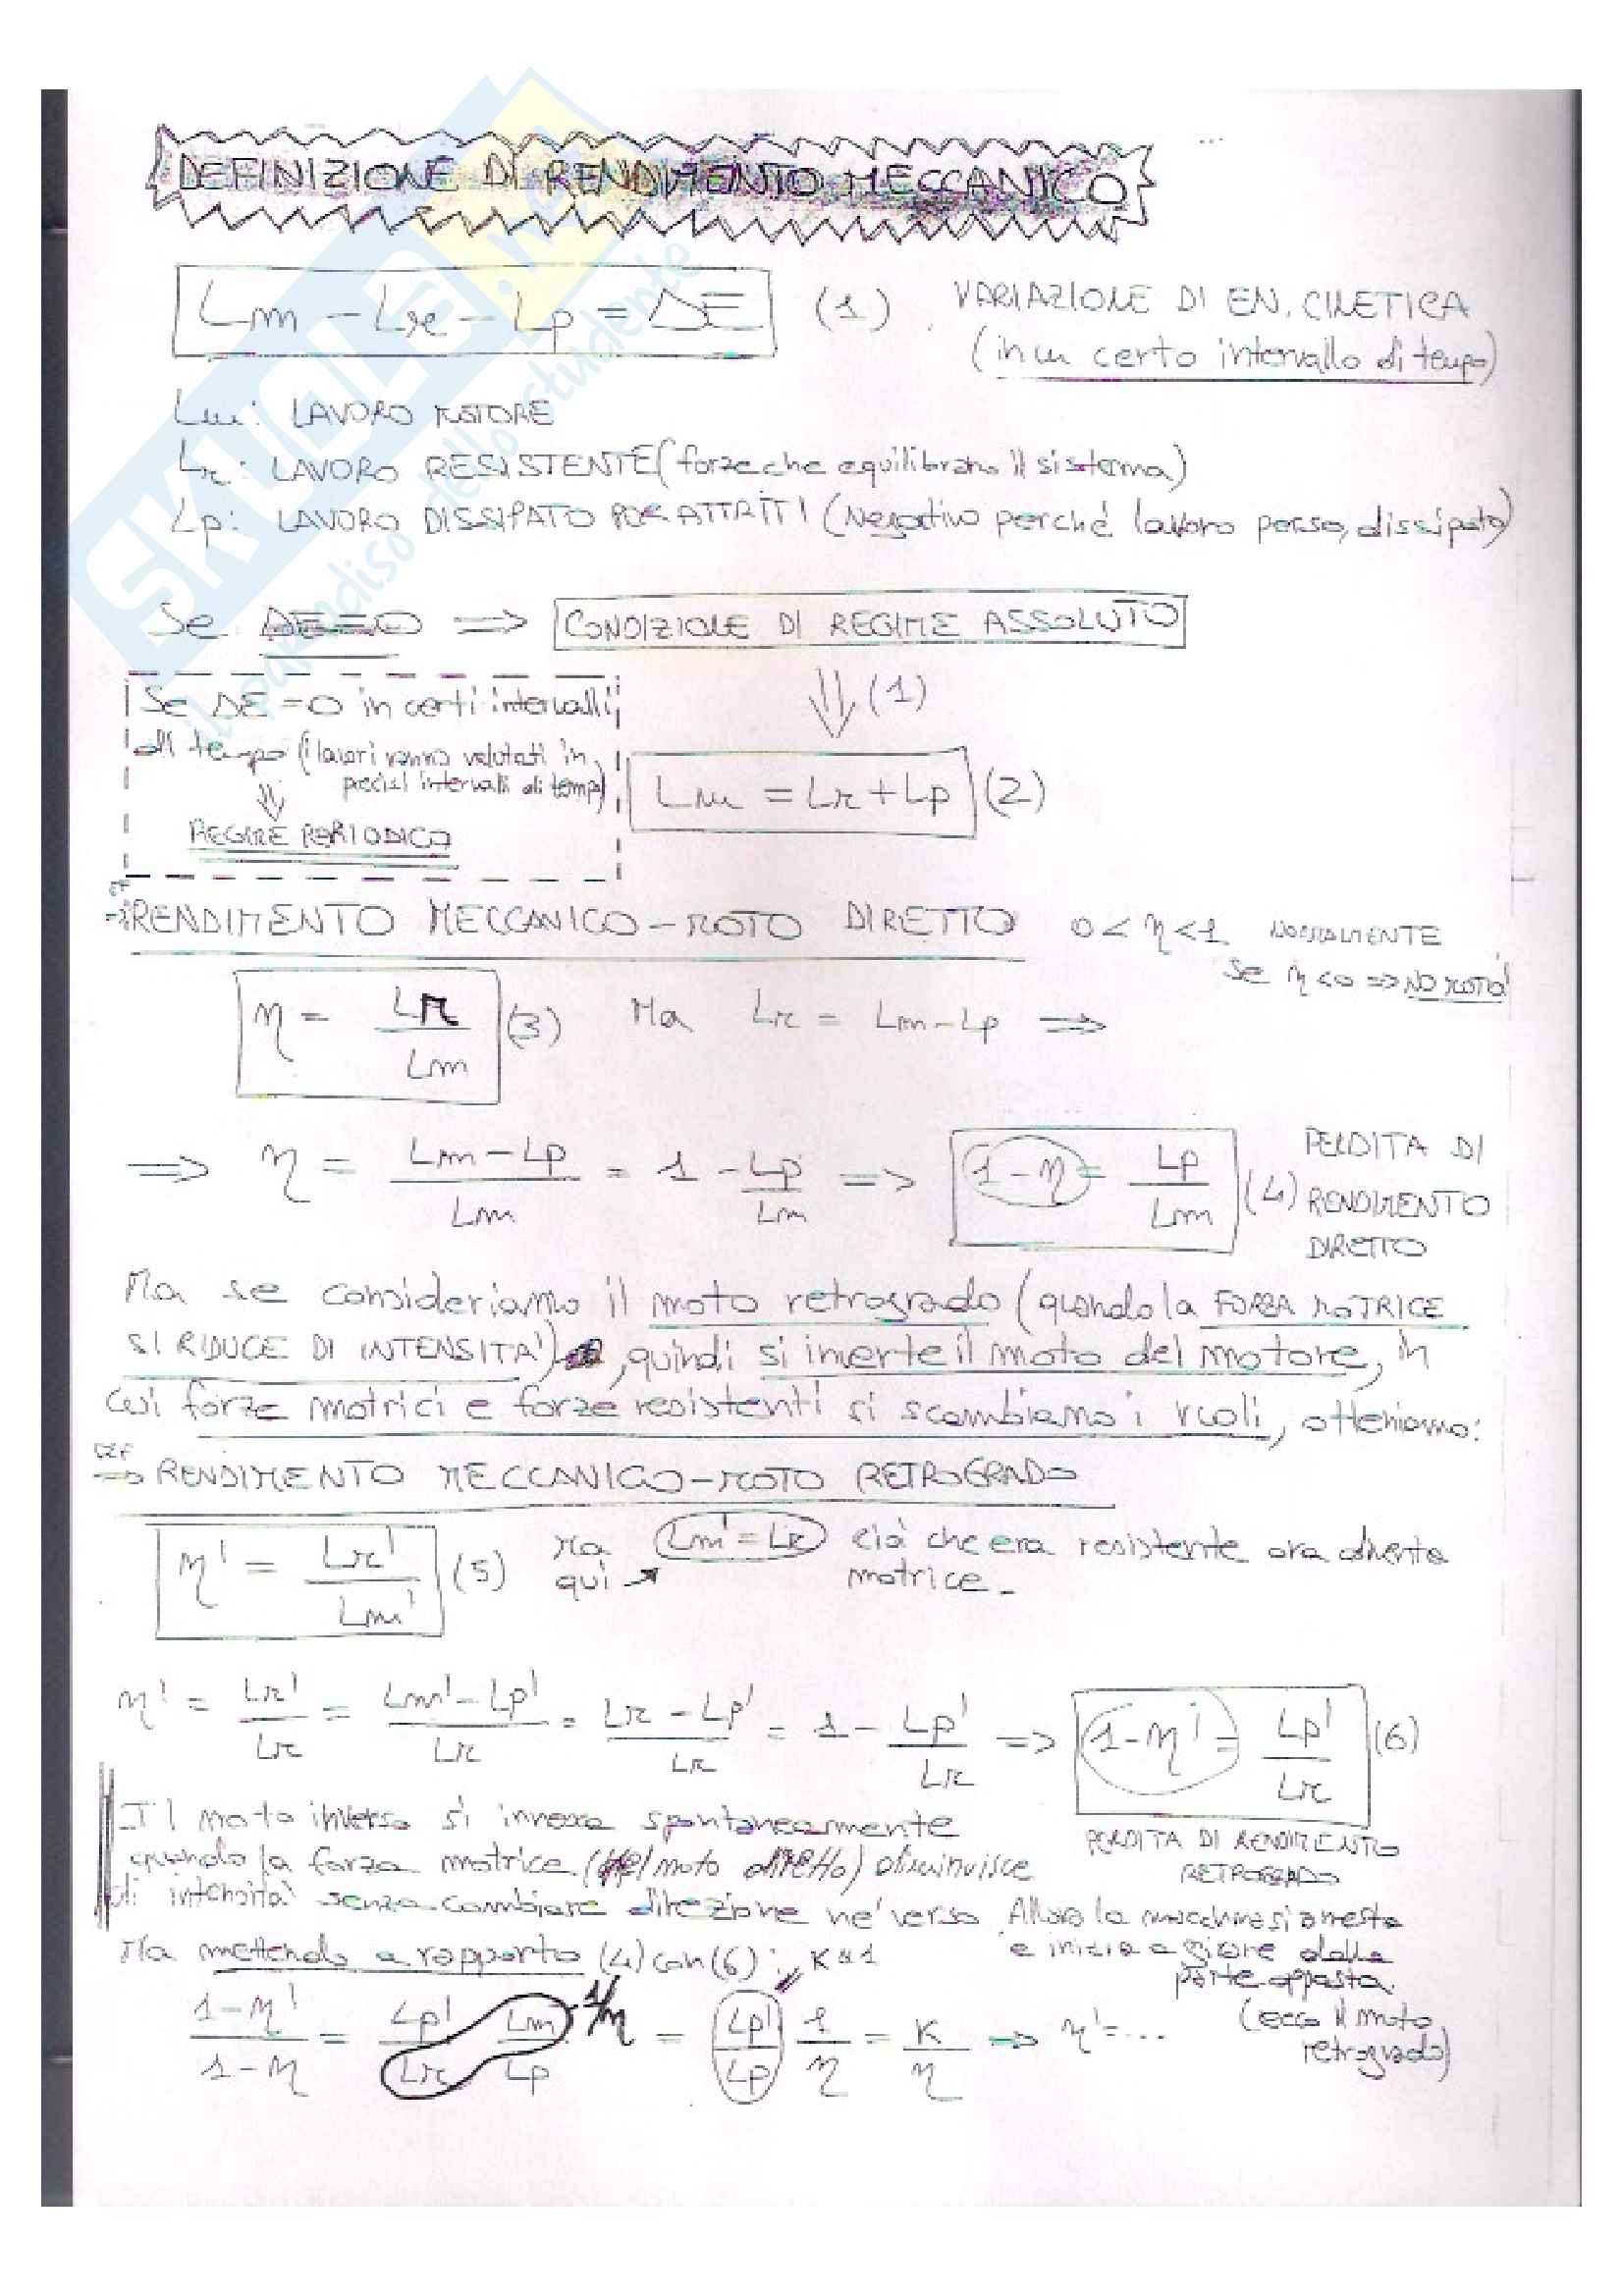 DEFINIZIONE DI RENDIMENTO MECCANICO
Lm - Lr - Lp = ΔE (1) VARIAZIONE DI EN. CINETICA
(in un certo intervallo di tempo)
Lm: LAVORO MOTORE
Lr: LAVORO RESISTENTE (forze che equilibrano il sistema)
Lp: LAVORO DISSIPATO PER ATTRITI (Negativo perché lavoro perso, dissipato)
Se ΔE=0 ⇒ CONDIZIONE DI REGIME ASSOLUTO
⇓ (1)
Se ΔE=0 in certi intervalli
di tempo (i lavori vanno valutati in
precisi intervalli di tempo)
⇓
REGIME PERIODICO
Lm = Lr + Lp (2)
⇒ RENDIMENTO MECCANICO - MOTO DIRETTO 0 < η < 1 NORMALMENTE
Se η<0 ⇒ NO MOTO!
η = Lr / Lm (3) Ma Lr = Lm - Lp ⇒
⇒ η = (Lm - Lp) / Lm = 1 - Lp / Lm ⇒ 1 - η = Lp / Lm (4) PERDITA DI
RENDIMENTO
DIRETTO
Ma se consideriamo il moto retrogrado (quando la FORZA MOTRICE
SI RIDUCE DI INTENSITA'), quindi si inverte il moto del motore, in
cui forze motrici e forze resistenti si scambiano i ruoli, otteniamo:
DEF
⇒ RENDIMENTO MECCANICO - MOTO RETROGRADO
η' = Lr' / Lm' (5) ma qui ↗ Lm' = Lr ciò che era resistente ora diventa
motrice.
η' = Lr' / Lr = (Lm' - Lp') / Lr = (Lr - Lp') / Lr = 1 - Lp' / Lr ⇒ 1 - η' = Lp' / Lr (6)
PERDITA DI RENDIMENTO
RETROGRADO
Il moto inverso si innesca spontaneamente
quando la forza motrice (del moto diretto) diminuisce
di intensità senza cambiare direzione ne' verso. Allora la macchina si arresta
e inizia a girare dalla
parte opposta.
(ecco il moto
retrogrado)
Ma mettendo a rapporto (4) con (6): K≅1
(1 - η') / (1 - η) = Lp' / Lr Lm / Lp 1/η = Lp' / Lp 1 / η = K / η ⇒ η' = ...
SKUOLA.net
il paradiso dello studente